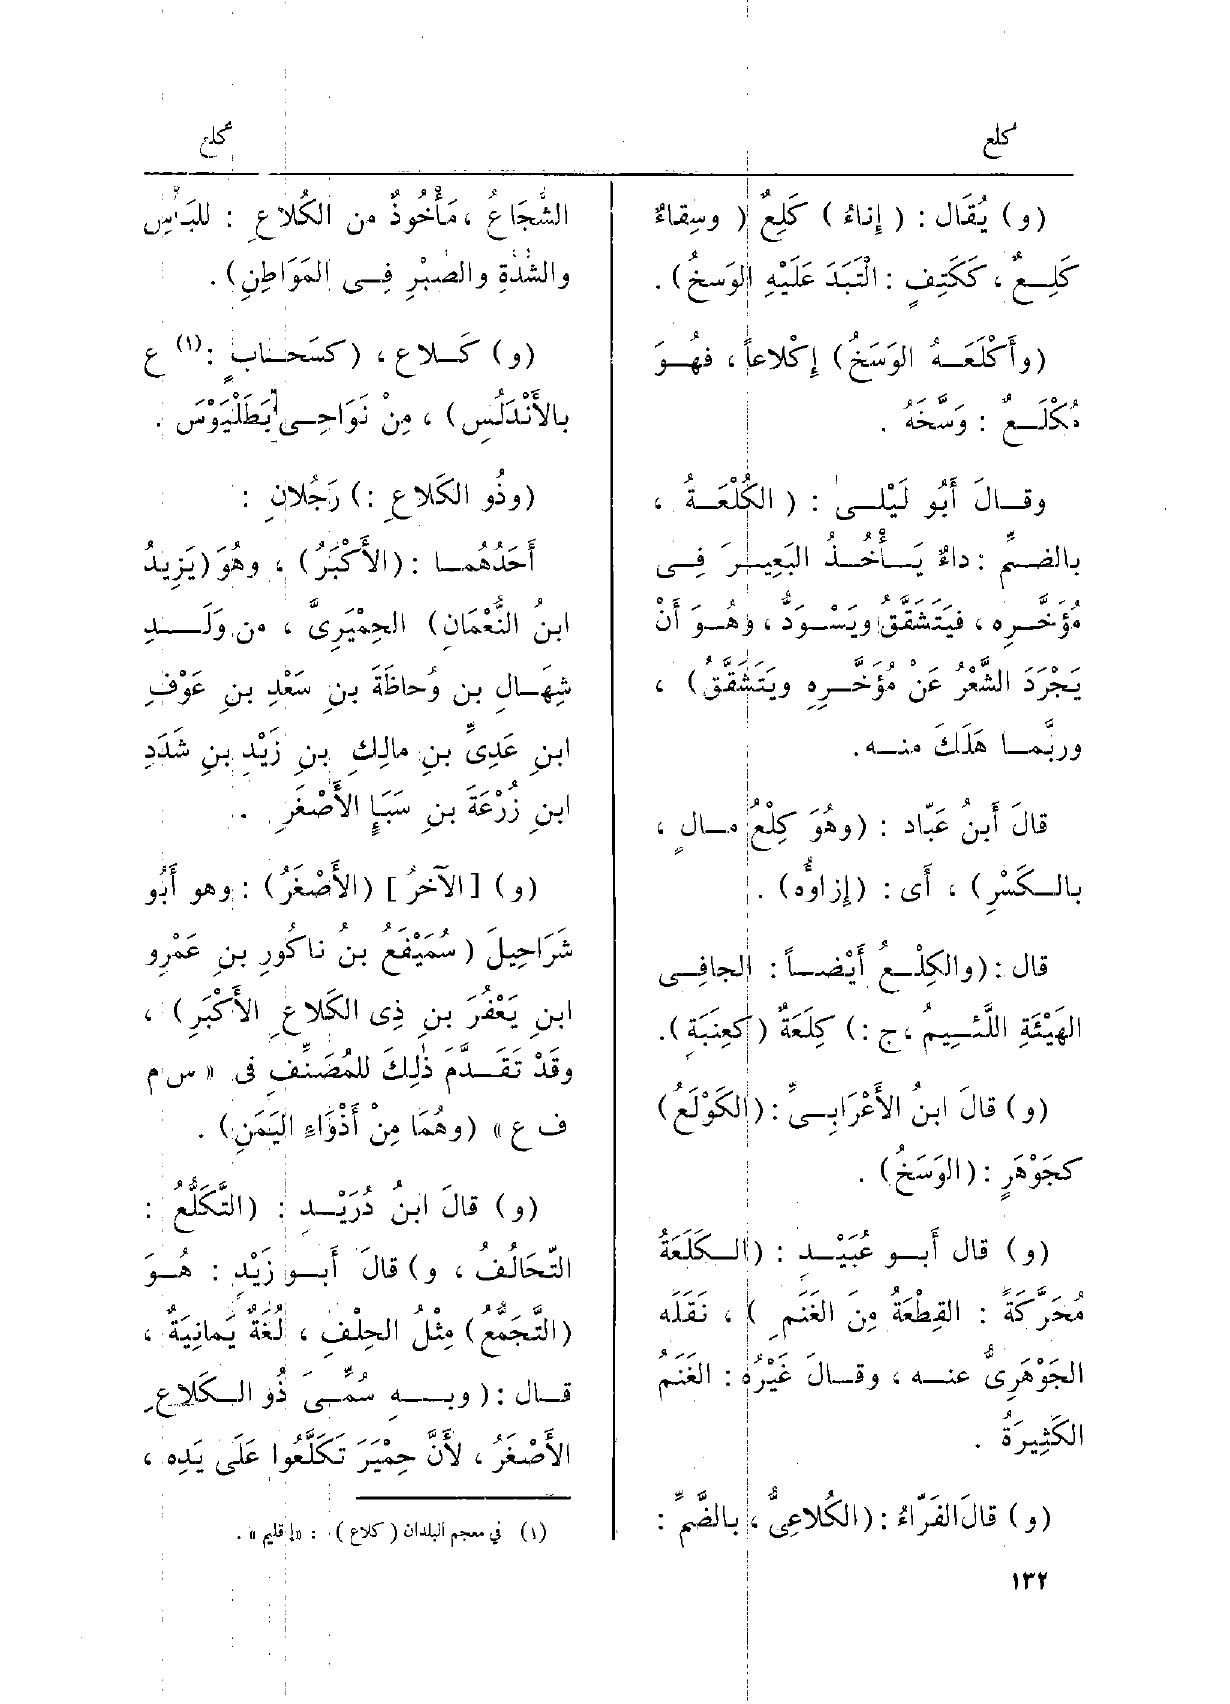 كلع
كلع
(و) يُقَال : ( إِناءٌ ) كَلِعٌ ( وسِقاءٌ
كَلِـعٌ ، كَكَتِفٍ : الْتَبَدَ عَلَيْهِ الوَسخُ) .
(وأَكْلَعَـهُ الوَسَخُ) إِكْلاعاً ، فهُـوَ
مُكْلَـعٌ : وَسَّخَهُ .
وقـالَ أَبُو لَيْلـى : ( الكُلْعَـةُ ،
بالضـمِّ : داءٌ يَـأْخُـذُ البَعِيـرَ فِـى
مُؤَخَّـرِه ، فيَتَشَقَّقُ ويَسْـوَدُّ ، وهُـوَ أَنْ
يَجْرَدَ الشَّعْرُ عَنْ مُؤَخَّـرِهِ ويَتَشَقَّقُ) ،
وربَّمـا هَلَكَ منـه.
قالَ أبنُ عَبّاد : (وهُوَ كِلْعُ مـالٍ ،
بالـكَسْرِ) ، أَى : (إِزاؤُه) .
قال : (والكِلْـعُ أَيْضـاً : الجافِـى
الهَيْئَةِ اللَّئـيمُ ، ج :) كِلَعَةٌ (كعِنَبَةٍ).
(و) قالَ ابنُ الأَعْرَابِـىِّ : (الكَوْلَعُ)
كجَوْهَرٍ : (الوَسَخُ) .
(و) قال أَبـو عُبَيْـد : (الـكَلَعَةُ
مُحَرَّكَةً : القِطْعَةُ مِنَ الغَنَمِ ) ، نَقَلَه
الجَوْهَرِىُّ عنـه ، وقـالَ غَيْرُه : الغَنَمُ
الكَثِيرَةُ .
(و) قالَ الفَرّاءُ : (الكُلاعِىُّ ، بالضَّمِّ :
الشُّجَاعُ ، مَأْخُوذٌ من الكُلاعِ : للبَأْسِ
والشِّدَّةِ والصَّبْرِ فِـى المَوَاطِنِ) .
(و) كَـلاع ، (كسَحـابٍ :⁽١⁾ ع
بالأَنْدَلُسِ) ، مِنْ نَوَاحِـى بَطَلْيَوْسَ .
(وذُو الكَلاعِ :) رَجُلانِ :
أَحَدُهُمـا : (الأَكْبَرُ) ، وهُوَ (يَزِيدُ
ابنُ النُّعْمَانِ) الحِمْيَرِىُّ ، من وَلَـدِ
شِهَـالِ بن وُحاظَةَ بنِ سَعْدِ بنِ عَوْفِ
ابنِ عَدِىِّ بنِ مالِكِ بنِ زَيْدِ بنِ شَدَدِ
ابنِ زُرْعَةَ بنِ سَبَإٍ الأَصْغَرِ .
(و) [الآخرُ] (الأَصْغَرُ) : وهو أَبُو
شَرَاحِيلَ (سُمَيْفَعُ بنُ ناكُورِ بنِ عَمْرِو
ابنِ يَعْفُرَ بنِ ذِى الكَلاعِ الأَكْبَرِ) ،
وقَدْ تقَـدَّمَ ذٰلِكَ للمُصَنِّفِ فى « س م
ف ع » (وهُمَا مِنْ أَذْوَاءِ اليَمَنِ) .
(و) قالَ ابنُ دُرَيْـدٍ : (التَّكَلُّعُ :
التَّحَالُفُ ، و) قالَ أَبـو زَيْدٍ : هُـوَ
(التَّجَمُّعُ) مِثْلُ الحِلْفِ ، لُغَةٌ يَمانِيَةٌ ،
قـال : ( وبـه سُمِّـىَ ذُو الـكَلاعِ
الأَصْغَرُ ، لأَنَّ حِمْيَرَ تَكَلَّعُوا عَلَى يَدِه ،
(١) في معجم البلدان ( كلاع ) : «إقليم» .
١٣٢